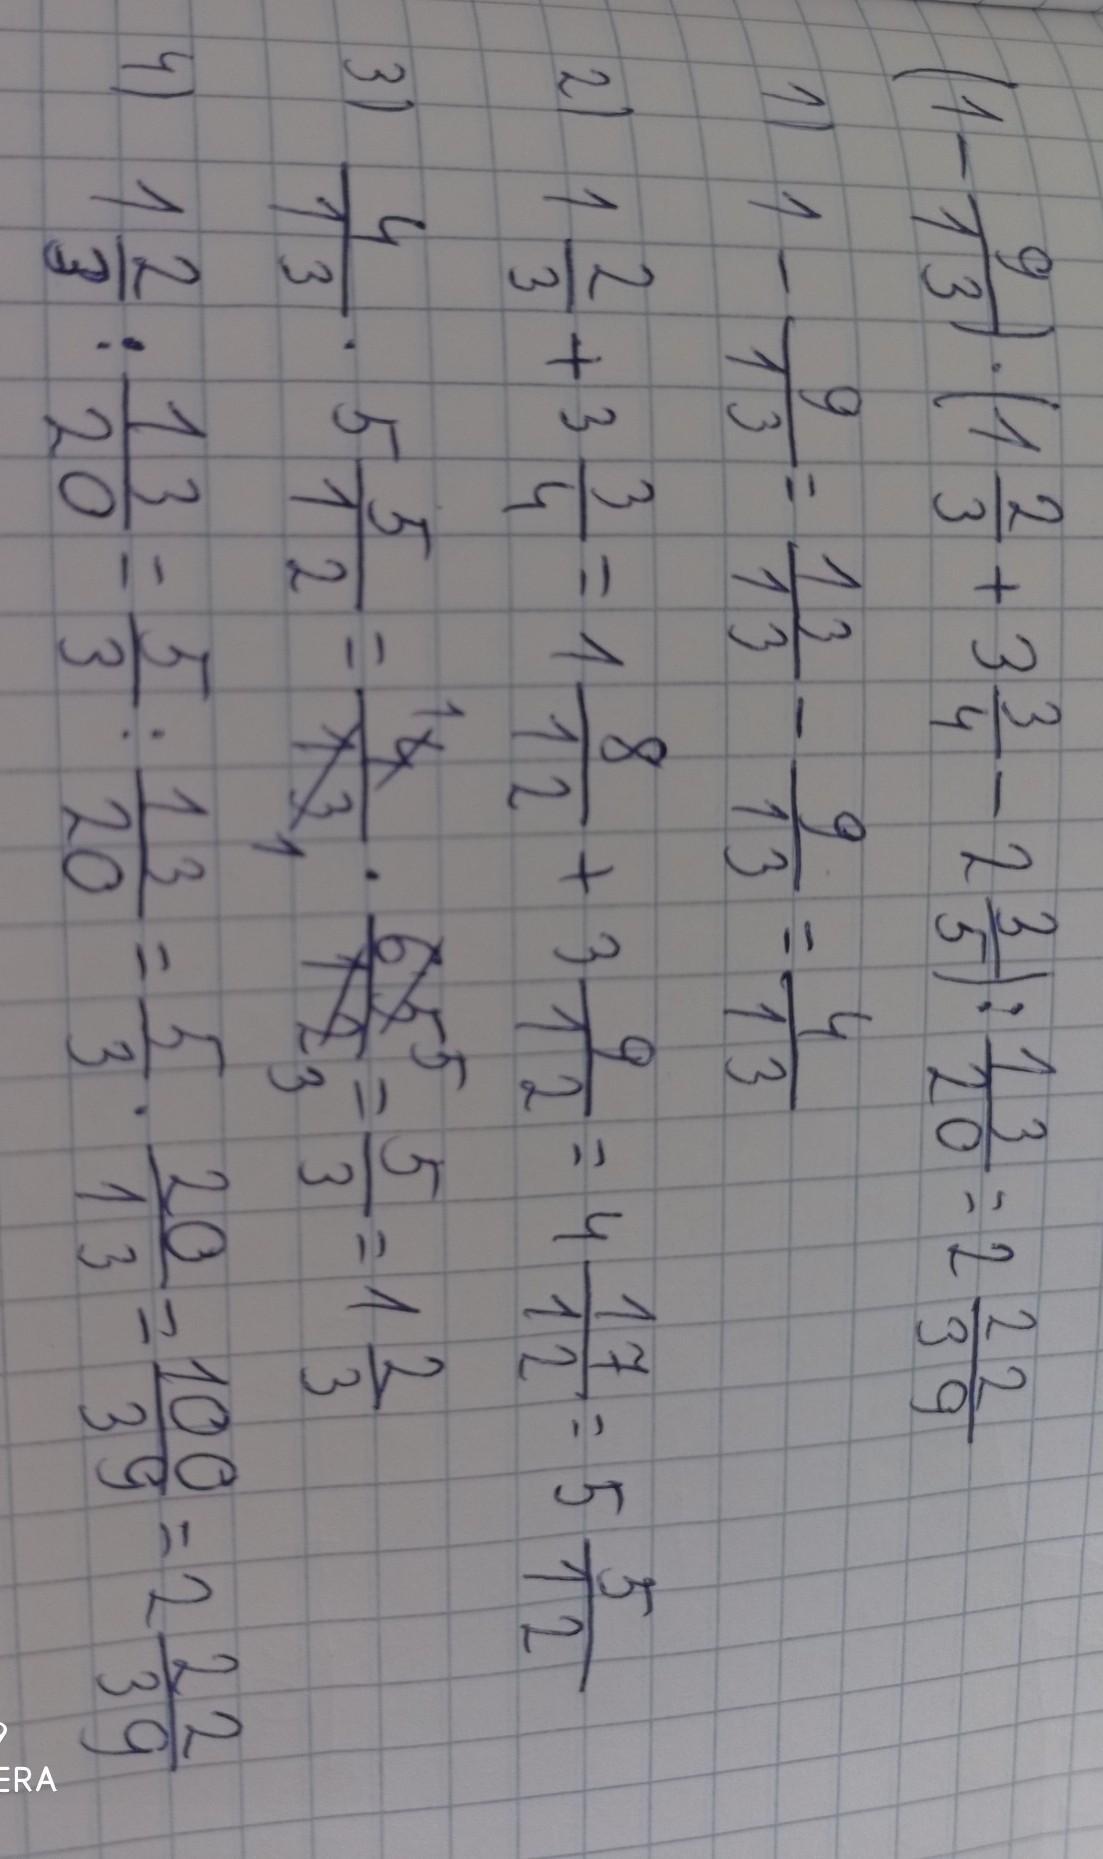 (1 - 9/13) · (1 2/3 + 3 3/4 - 2 3/5) : 13/20 = 2 22/39
1) 1 - 9/13 = 13/13 - 9/13 = 4/13
2) 1 2/3 + 3 3/4 = 1 8/12 + 3 9/12 = 4 17/12 = 5 5/12
3) 4/13 · 5 5/12 = 4/13 · 65/12 = 5/3 = 1 2/3
4) 1 2/3 : 13/20 = 5/3 : 13/20 = 5/3 · 20/13 = 100/39 = 2 22/39